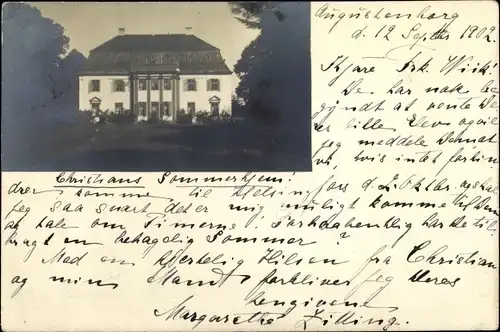 Augustenborg
d. 12 Septbr 1902.
Kjære Frk. Wiik!
De har nok be
gyndt at vente De
res lille Elev og vil
jeg meddele Dem at
vi, hvis intet forhin
Christians Sommerhjem!
drer komme til Helsingfors d. 2. Oktbr. og skal
jeg saa snart det er mig muligt komme til Dem
og tale om Timerne. Forhaabentlig har De til
bragt en behagelig Sommer?
Med en hjertelig Hilsen fra Christian
og min Mand forbliver jeg Deres
hengivene
Margarethe